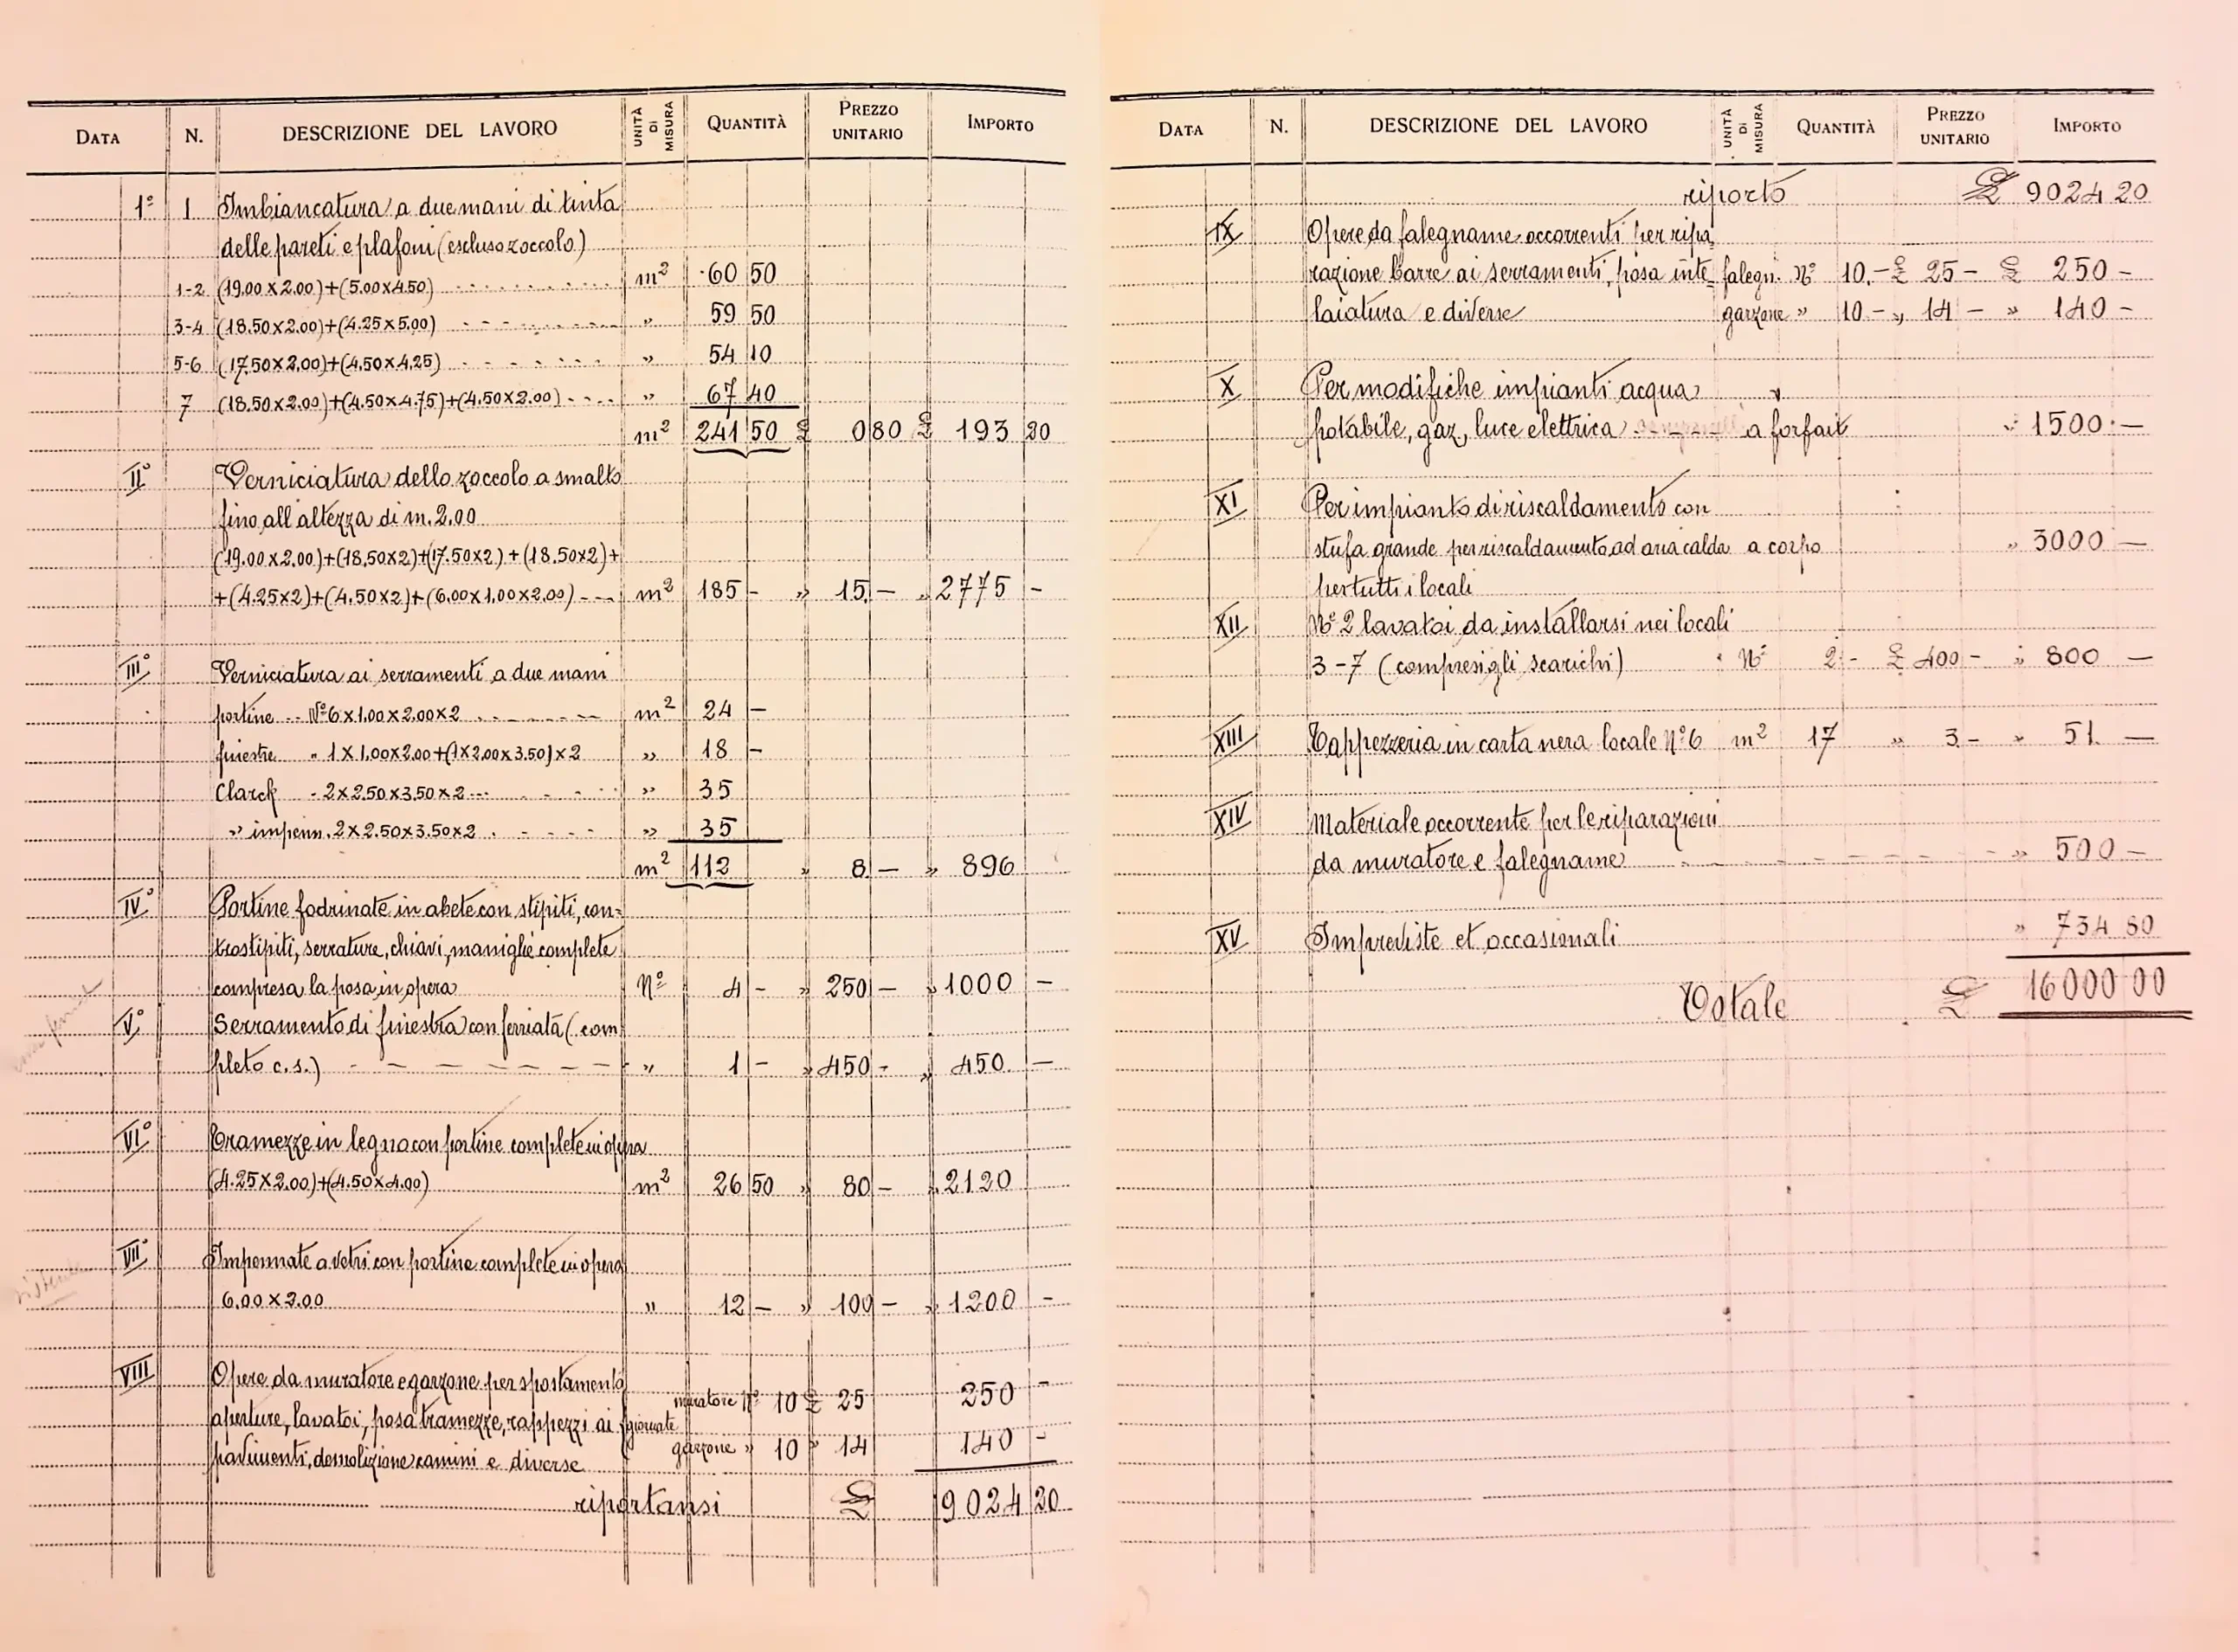 DATA N. DESCRIZIONE DEL LAVORO UNITÀ DI MISURA QUANTITÀ PREZZO UNITARIO IMPORTO
1° 1 Imbiancatura a due mani di tinta
delle pareti e plafoni (escluso zoccolo)
1-2 (19.00 x 2.00) + (5.00 x 4.50) m² 60 50
3-4 (18.50 x 2.00) + (4.25 x 5.00) " 59 50
5-6 (17.50 x 2.00) + (4.50 x 4.25) " 54 10
7 (18.50 x 2.00) + (4.50 x 4.75) + (4.50 x 2.00) " 67 40
m² 241 50 £ 0 80 £ 193 20
II° Verniciatura dello zoccolo a smalto
fino all'altezza di m. 2.00
(19.00 x 2.00) + (18.50 x 2) + (17.50 x 2) + (18.50 x 2) +
+ (4.25 x 2) + (4.50 x 2) + (6.00 x 1.00 x 2.00) --- m² 185 - " 15 - " 2775 -
III° Verniciatura ai serramenti a due mani
portine -- N° 6 x 1.00 x 2.00 x 2 m² 24 -
finestre " 1 x 1.00 x 2.00 + (1 x 2.00 x 3.50) x 2 " 18 -
Clarck - 2 x 2.50 x 3.50 x 2 --- " 35
" impenn. 2 x 2.50 x 3.50 x 2 " 35
m² 112 " 8 - " 896
IV° Portine fodrinate in abete con stipiti, con=
trostipiti, serrature, chiavi, maniglie complete
compresa la posa in opera N° 4 - " 250 - " 1000 -
V° Serramento di finestra con ferriata (com
pleto c.s.) " 1 - " 450 - " 450 -
VI° Tramezze in legno con portine complete in opera
(4.25 x 2.00) + (4.50 x 4.00) m² 26 50 " 80 - " 2120
VII° Impennate a vetri con portine complete in opera
6.00 x 2.00 " 12 - " 100 - " 1200 -
VIII Opere da muratore e garzone per spostamento
muratore N° 10 £ 25 250 -
aperture, lavatoi, posa tramezze, rappezzi ai giornate
garzone " 10 " 14 140 -
pavimenti, demolizione camini e diverse
riportansi £ 9024 20
DATA N. DESCRIZIONE DEL LAVORO UNITÀ DI MISURA QUANTITÀ PREZZO UNITARIO IMPORTO
riporto £ 9024 20
IX Opere da falegname occorrenti per ripa
razione barre ai serramenti, posa inte falegn. N° 10.- £ 25 - £ 250 -
laiatura e diverse garzone " 10 - " 14 - " 140 -
X Per modifiche impianti acqua
potabile, gaz, luce elettrica a forfait " 1500 -
XI Per impianto di riscaldamento con
stufa grande per riscaldamento ad aria calda a corpo " 3000 -
per tutti i locali
XII N° 2 lavatoi da installarsi nei locali
3-7 (compresi gli scarichi) N° 2 - £ 400 - " 800 -
XIII Tappezzeria in carta nera locale N° 6 m² 17 " 3 - " 51 -
XIV Materiale occorrente per le riparazioni
da muratore e falegname " 500 -
XV Impreviste et occasionali " 734 80
Totale £ 16000 00